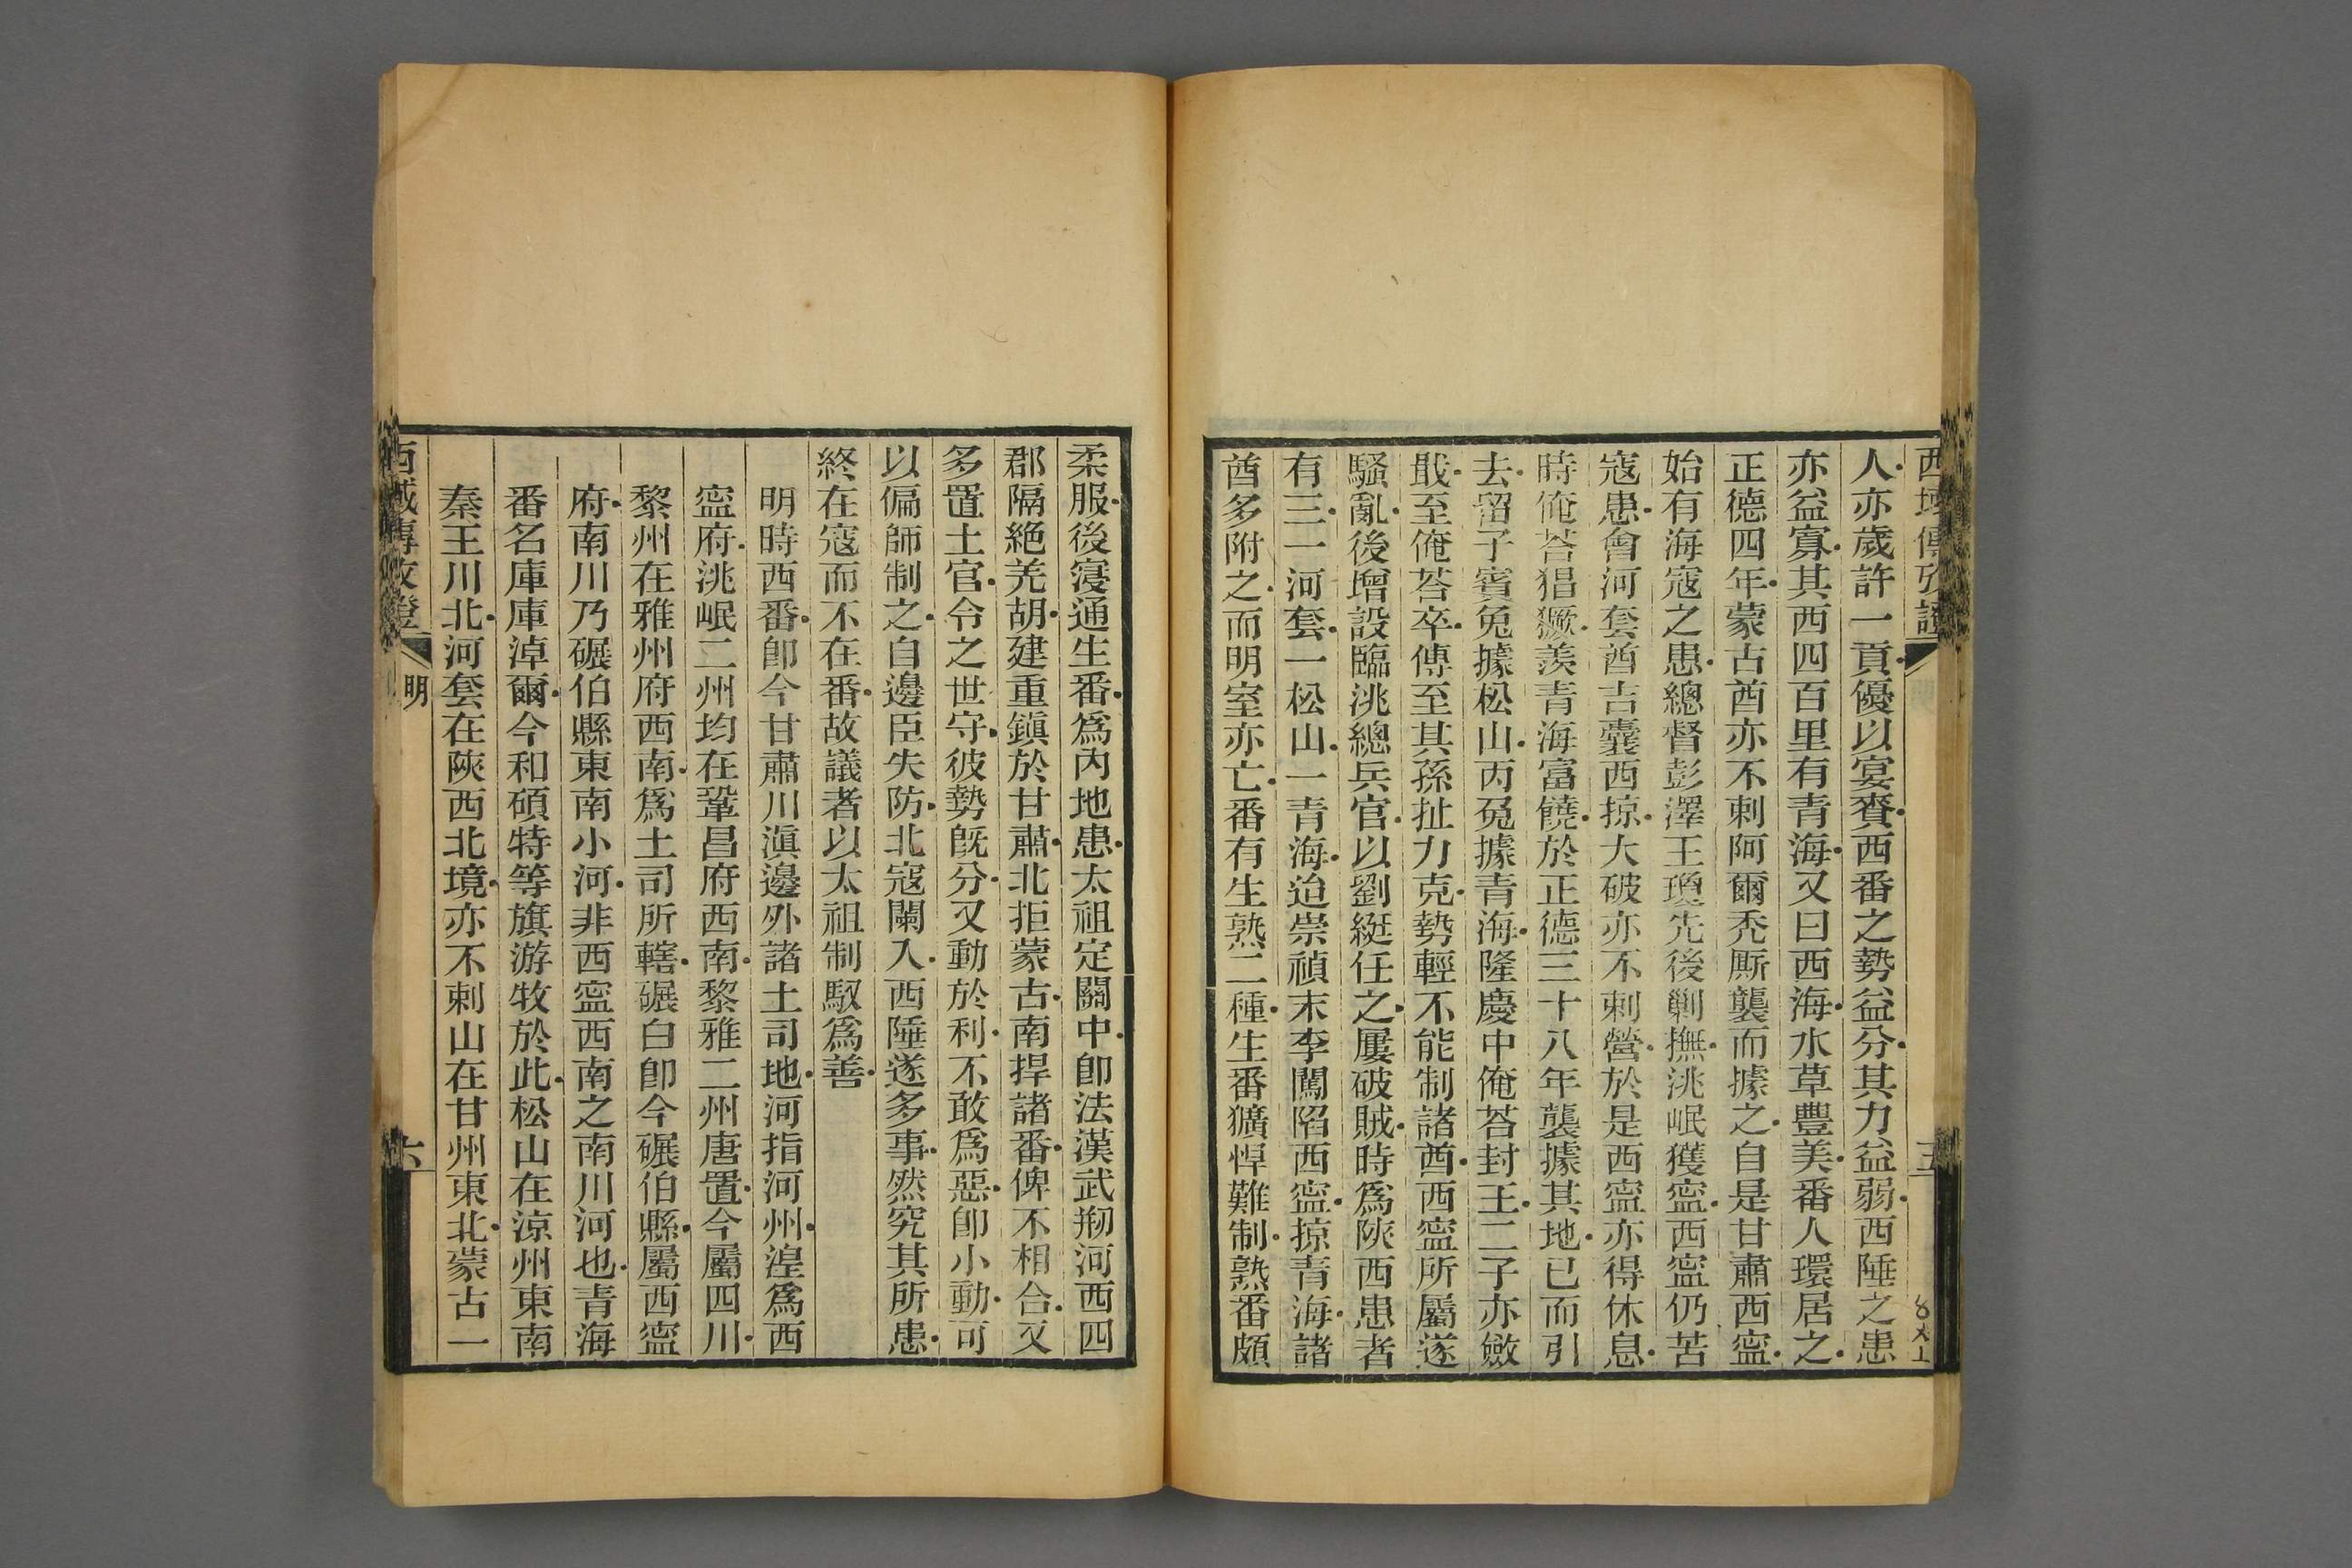 西域傳攷證
五
人亦歲許一貢優以宴賚西番之勢益分其力益弱西陲之患
亦益寡其西四百里有青海又曰西海水草豐美番人環居之
正德四年蒙古酋亦不剌阿爾禿厮襲而據之自是甘肅西寍
始有海寇之患總督彭澤王瓊先後剿撫洮岷獲寍西寍仍苦
寇患會河套酋吉囊西掠大破亦不剌營於是西寍亦得休息
時俺荅猖獗羨青海富饒於正德三十八年襲據其地已而引
去留子賓兔據松山丙兔據青海隆慶中俺荅封王二子亦斂
戢至俺荅卒傳至其孫扯力克勢輕不能制諸酋西寍所屬遂
騷亂後增設臨洮總兵官以劉綎任之屢破賊時爲陝西患者
有三一河套一松山一青海迨崇禎末李闖陷西寍掠青海諸
酋多附之而明室亦亡番有生熟二種生番獷悍難制熟番頗
柔服後寖通生番爲內地患太祖定關中卽法漢武剙河西四
郡隔絶羌胡建重鎮於甘肅北拒蒙古南捍諸番俾不相合又
多置土官令之世守彼勢旣分又動於利不敢爲惡卽小動可
以偏師制之自邊臣失防北寇闌入西陲遂多事然究其所患
終在寇而不在番故議者以太祖制馭爲善
明時西番卽今甘肅川滇邊外諸土司地河指河州湟爲西
寍府洮岷二州均在鞏昌府西南黎雅二州唐置今屬四川
黎州在雅州府西南爲土司所轄碾白卽今碾伯縣屬西寍
府南川乃碾伯縣東南小河非西寍西南之南川河也青海
番名庫庫淖爾今和碩特等旗游牧於此松山在涼州東南
秦王川北河套在陝西北境亦不剌山在甘州東北蒙古一
西域傳攷證
明
六